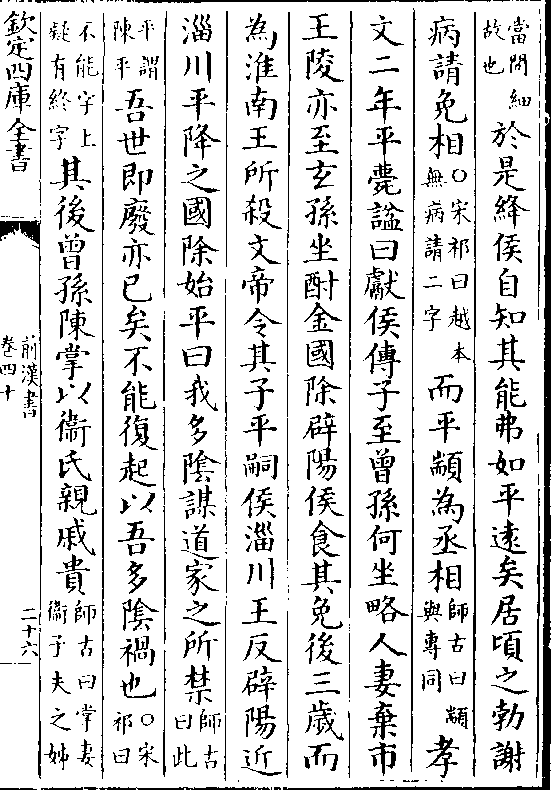 當問細故也於是絳侯自知其能弗如平遠矣居頃之勃謝
病請免相○宋祁曰越本無病請二字而平顓為丞相師古曰顓與專同孝
文二年平薨諡曰獻侯傳子至曾孫何坐略人妻棄市
王陵亦至玄孫坐酎金國除辟陽侯食其免後三歲而
為淮南王所殺文帝令其子平嗣侯淄川王反辟陽近
淄川平降之國除始平曰我多陰謀道家之所禁師古曰此
平謂陳平吾世即廢亦已矣不能復起以吾多陰禍也○宋祁曰
不能字上疑有終字其後曾孫陳掌以衞氏親戚貴師古曰掌妻衞子夫之姊
欽定四庫全書
前漢書
卷四十
二十六